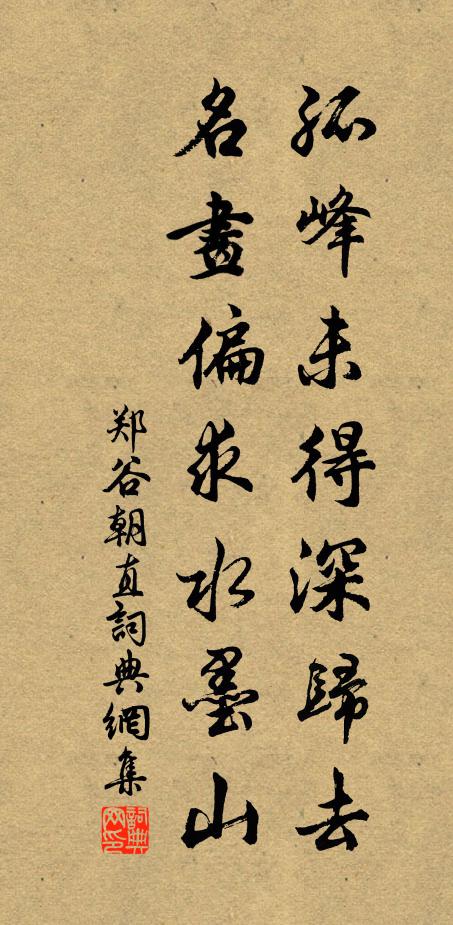 孤峰未得深歸去
名畫偏求水墨山
郑谷朝直詞典網集
詞典網印